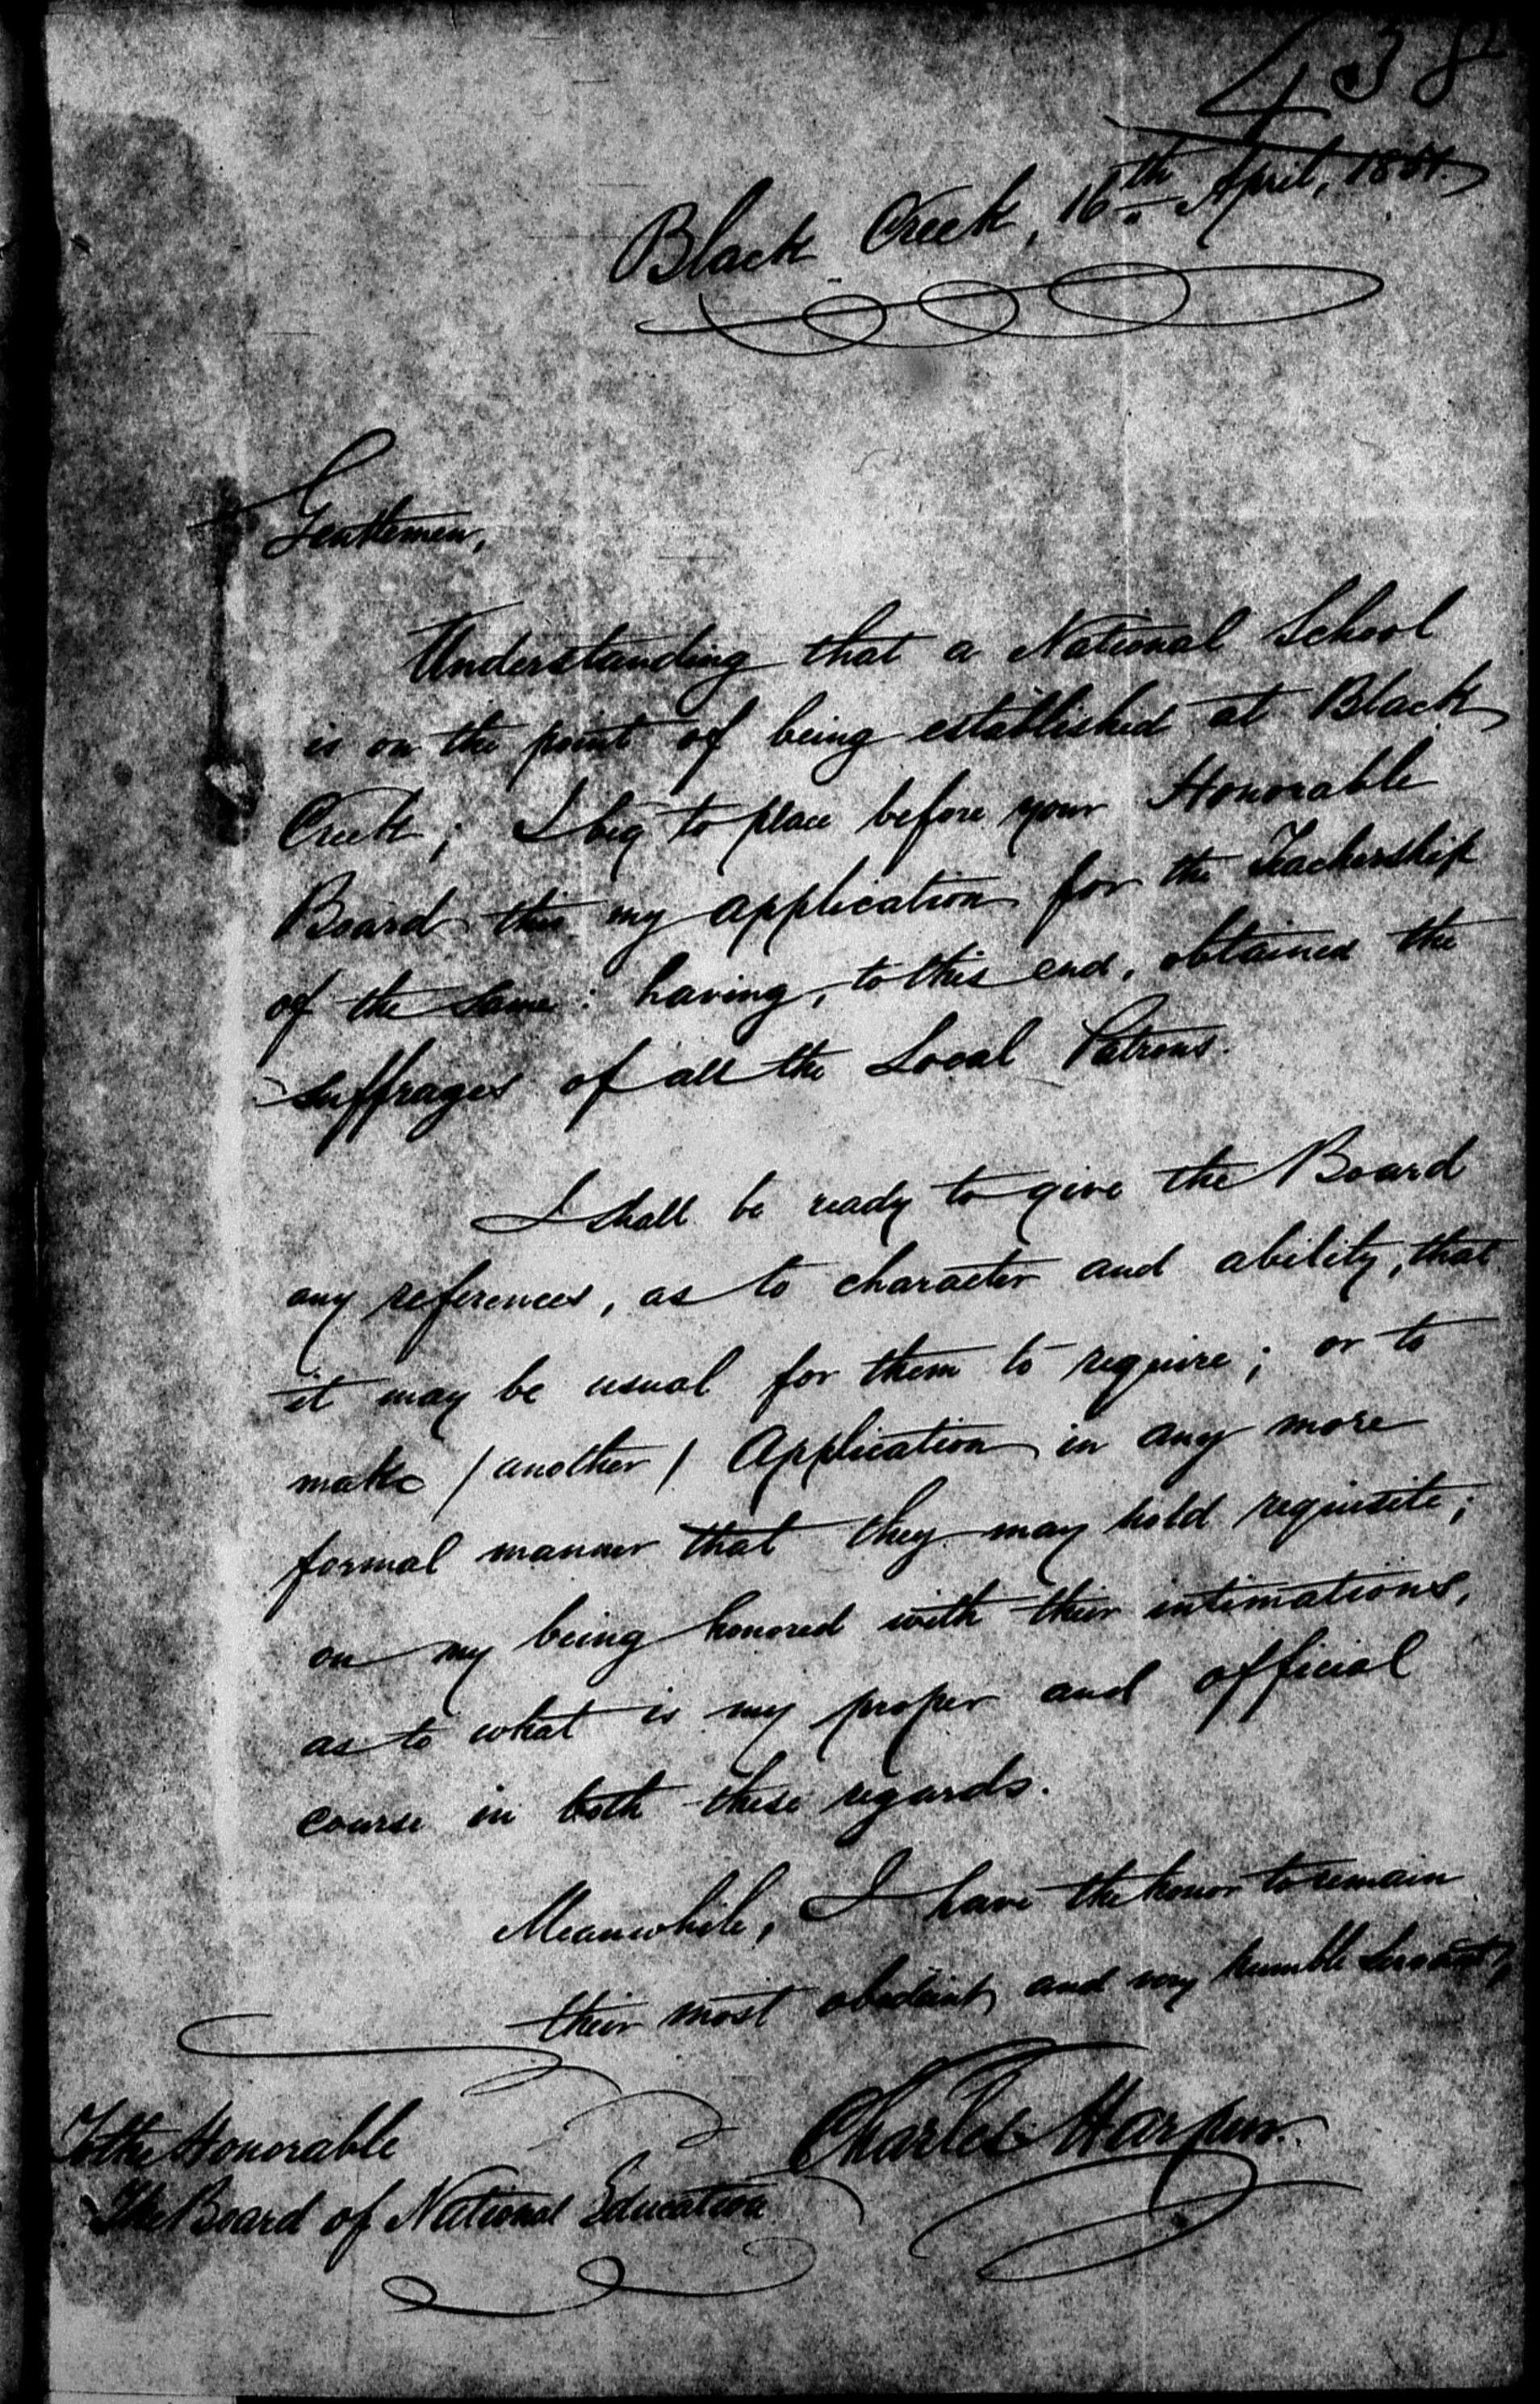 438
Black Creek, 16th April, 1851.
Gentlemen,
Understanding that a National School
is on the point of being established at Black
Creek; I beg to place before your Honorable
Board this my application for the Teachership
of the same: having, to this end, obtained the
suffrages of all the Local Patrons.
I shall be ready to give the Board
any references, as to character and ability, that
it may be usual for them to require; or to
make (another) Application in any more
formal manner that they may hold requisite;
on my being honored with their intimations,
as to what is my proper and official
course in both these regards.
Meanwhile, I have the honor to remain
their most obedient, and very humble Servant,
Charles Harpur.
To the Honorable
The Board of National Education